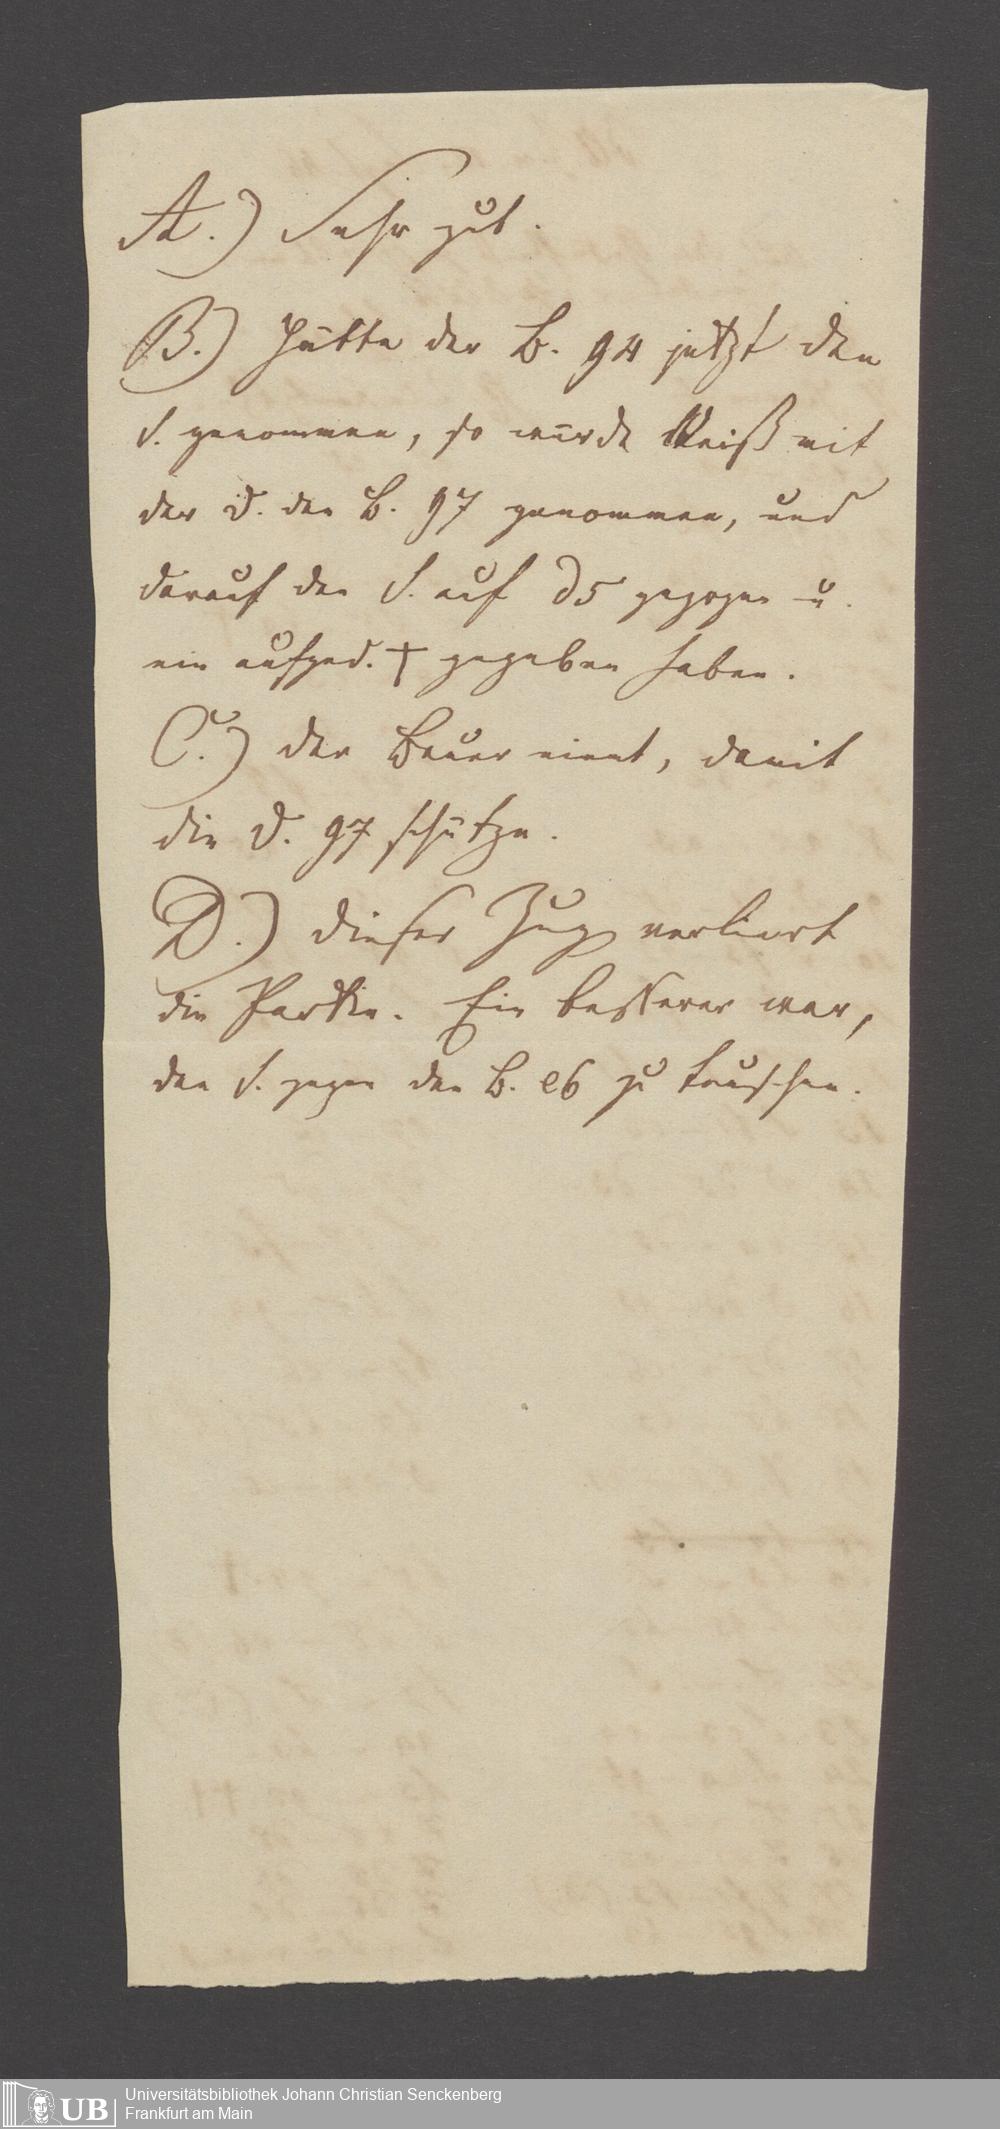 A.) Sehr gut.
B.) Hätte der B. g4 jetzt den
S. genommen, so würde Weiß mit
der D. den B. g7 genommen, und
darauf den S. auf d5 gezogen u.
ein aufged. † gegeben haben.
C.) der Bauer nimt, damit
die D. g7 schütze.
D.) dieser Zug verliert
die Partie. Ein besserer war,
den S. gegen den B. e6 zu tauschen.
UB
Universitätsbibliothek Johann Christian Senckenberg
Frankfurt am Main